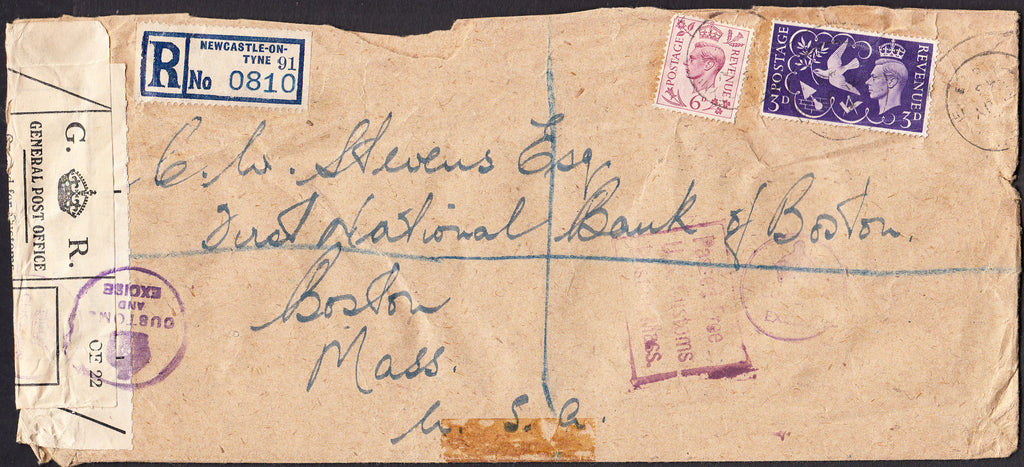 NEWCASTLE-ON-
TYNE 91
R No 0810
POSTAGE REVENUE
6D
POSTAGE REVENUE
3D 3D
G. R.
GENERAL POST OFFICE
CUSTOMS
AND
EXCISE
OE 22
C. W. Stevens Esq.
First National Bank of Boston.
Boston
Mass.
U. S. A.